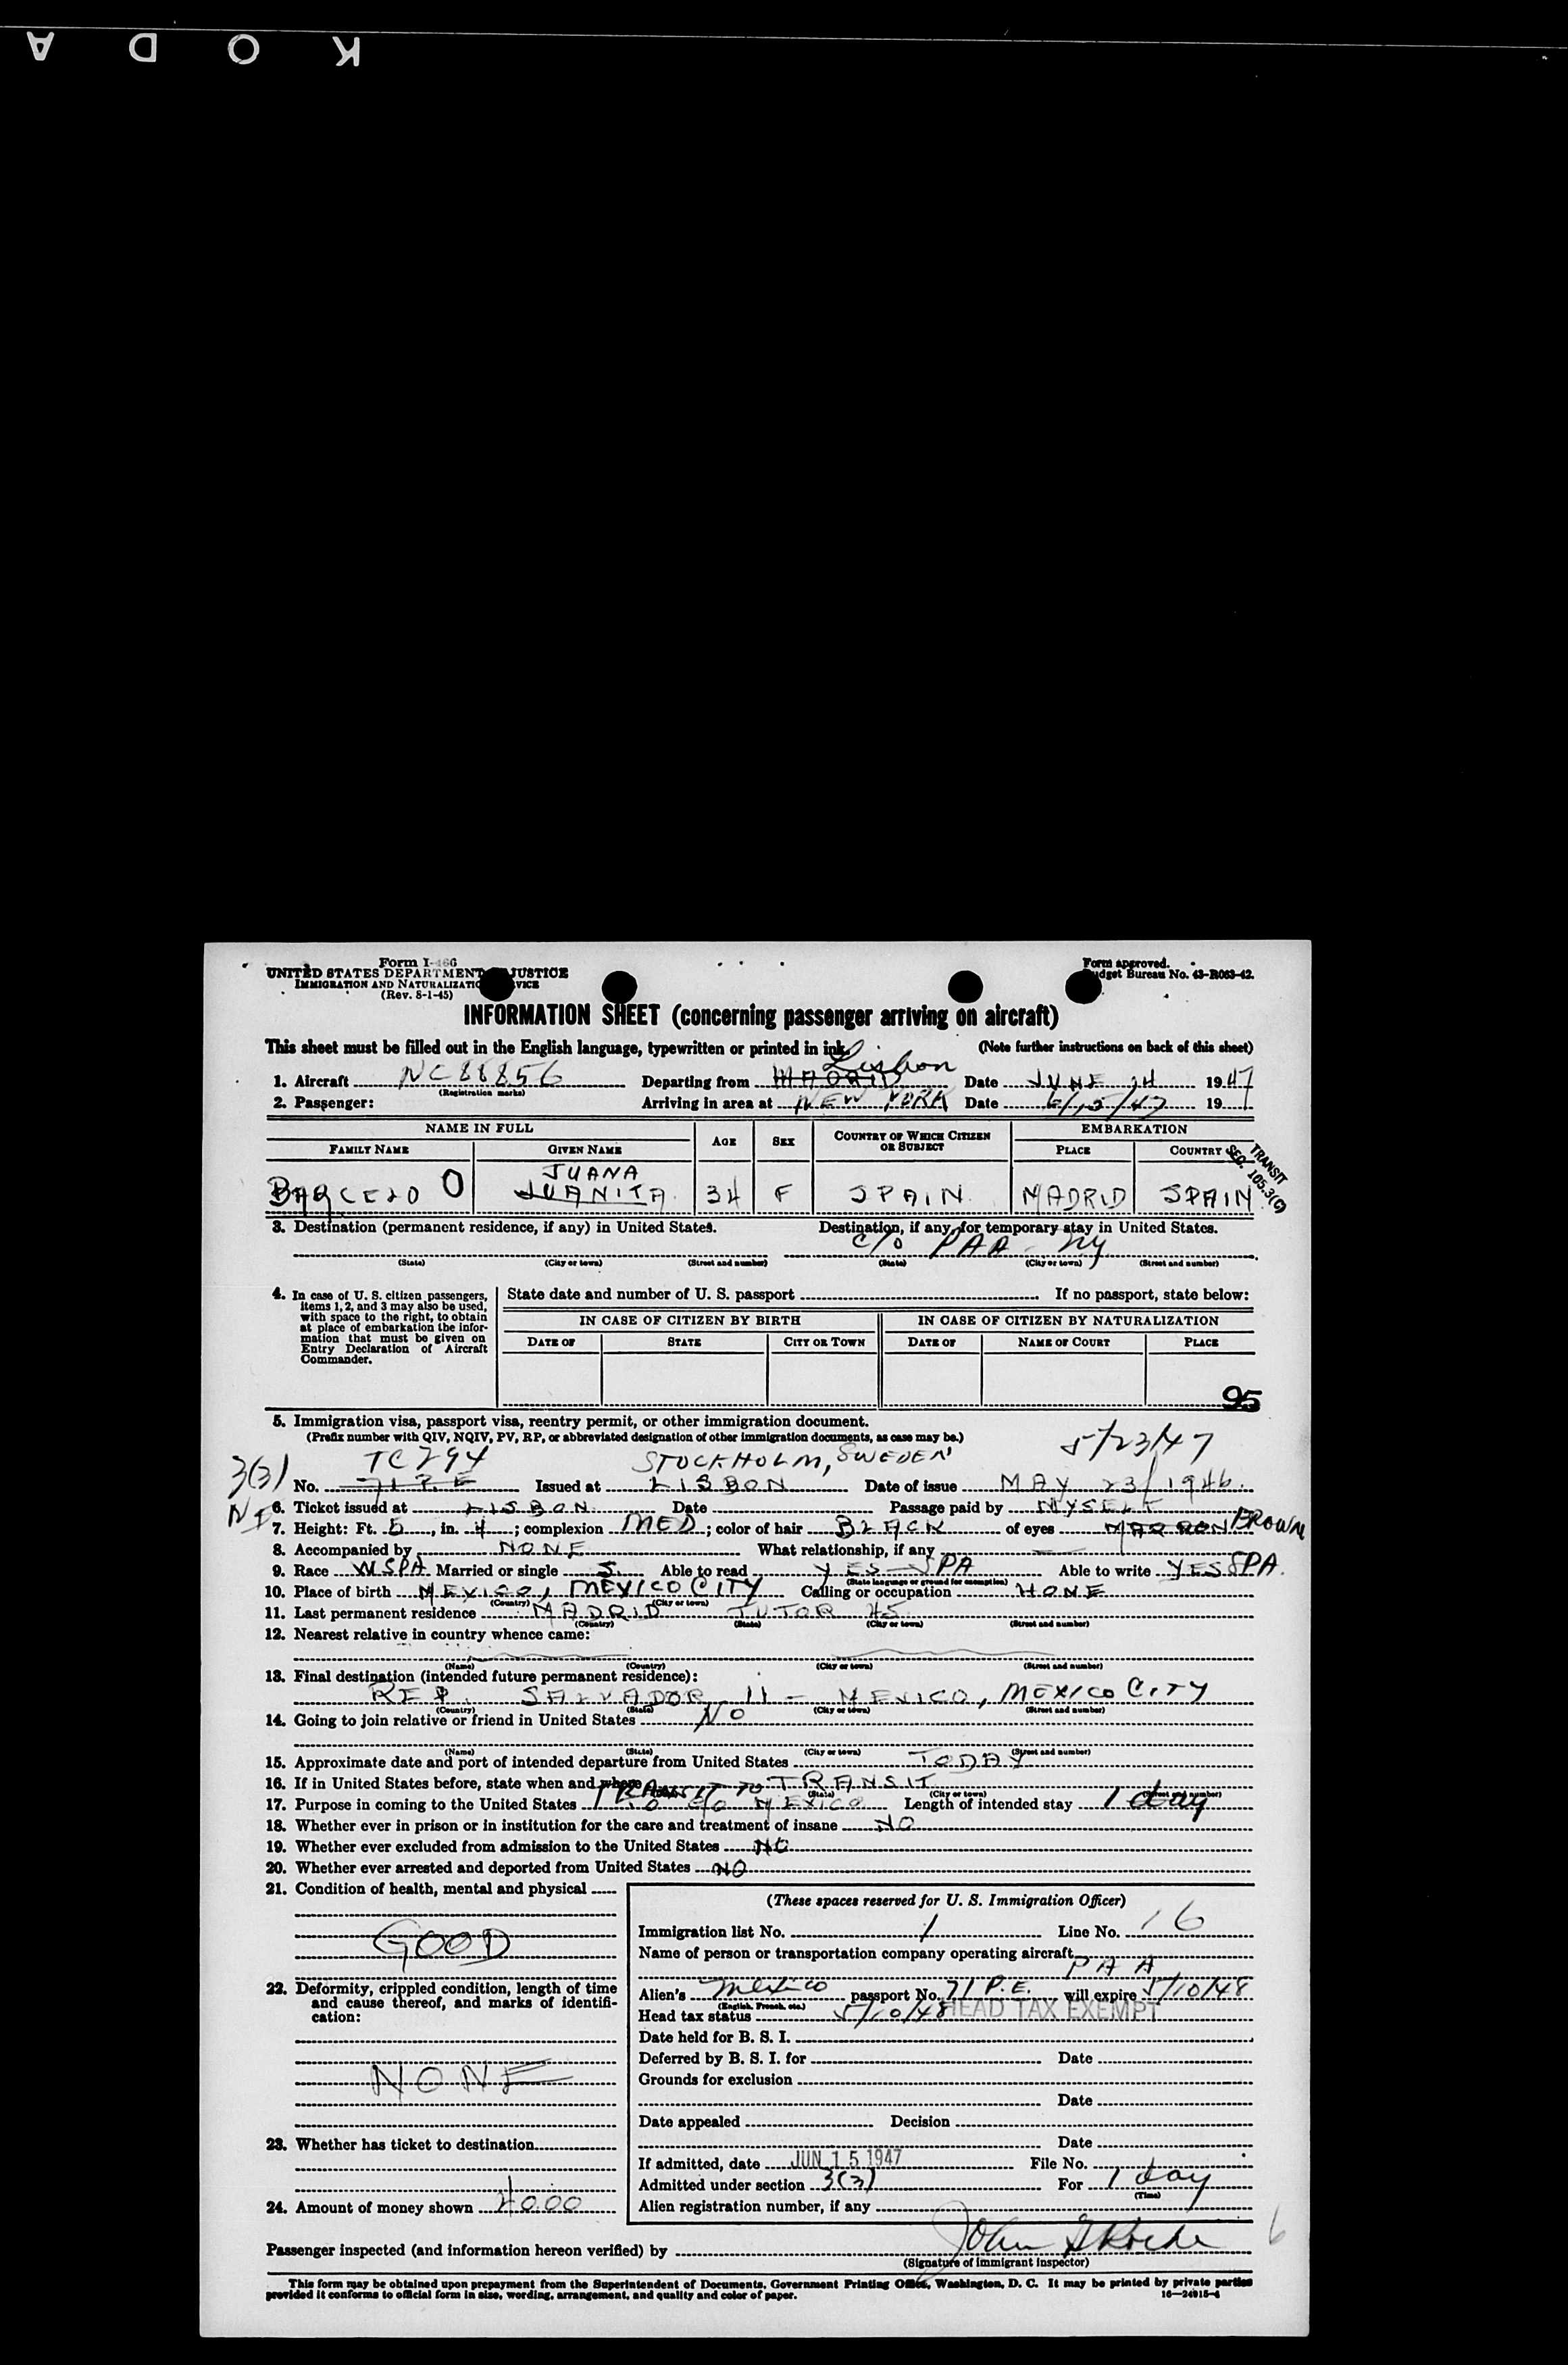 K O D A
Form I-466
UNITED STATES DEPARTMENT JUSTICE
IMMIGRATION AND NATURALIZATIO VICE
(Rev. 8-1-45)
Form approved.
udget Bureau No. 43-R063-42.
INFORMATION SHEET (concerning passenger arriving on aircraft)
This sheet must be filled out in the English language, typewritten or printed in ink.
(Note further instructions on back of this sheet)
Lisbon
1. Aircraft NC88856 Departing from MADRID Date JUNE 14 1947
(Registration marks)
2. Passenger: Arriving in area at NEW YORK Date 6/15/47 19
NAME IN FULL AGE SEX COUNTRY OF WHICH CITIZEN OR SUBJECT EMBARKATION
FAMILY NAME GIVEN NAME PLACE COUNTRY
TRANSIT
SEC. 105.3(C)
JUANA
O JUANITA 34 F SPAIN MADRID SPAIN
3. Destination (permanent residence, if any) in United States. Destination, if any, for temporary stay in United States.
c/o PAA - NY
(State) (City or town) (Street and number) (State) (City or town) (Street and number)
4. In case of U. S. citizen passengers, items 1, 2, and 3 may also be used, with space to the right, to obtain at place of embarkation the information that must be given on Entry Declaration of Aircraft Commander.
State date and number of U. S. passport If no passport, state below:
IN CASE OF CITIZEN BY BIRTH IN CASE OF CITIZEN BY NATURALIZATION
DATE OF STATE CITY OR TOWN DATE OF NAME OF COURT PLACE
95
5. Immigration visa, passport visa, reentry permit, or other immigration document.
(Prefix number with QIV, NQIV, PV, RP, or abbreviated designation of other immigration documents, as case may be.)
3(3) TC 294 STOCKHOLM, SWEDEN 5/23/47
No. 71 P.E Issued at LISBON Date of issue MAY 23/1946.
6. Ticket issued at LISBON Date Passage paid by MYSELF
7. Height: Ft. 5, in. 4; complexion MED; color of hair BLACK of eyes MARRON BROWN
8. Accompanied by NONE What relationship, if any —
9. Race W SPA Married or single S. Able to read YES - SPA Able to write YES SPA.
(State language or ground for exemption)
10. Place of birth MEXICO, MEXICO CITY Calling or occupation HOME
(Country) (City or town)
11. Last permanent residence MADRID TUTOR 45
(Country) (State) (City or town) (Street and number)
12. Nearest relative in country whence came:
(Name) (Country) (City or town) (Street and number)
13. Final destination (intended future permanent residence):
REP. SALVADOR 11 - MEXICO, MEXICO CITY
(Country) (State) (City or town) (Street and number)
14. Going to join relative or friend in United States NO
(Name) (State) (City or town) (Street and number)
15. Approximate date and port of intended departure from United States TODAY
16. If in United States before, state when and where TRANSIT
(State) (City or town) (Street and number)
TRANSIT TO
17. Purpose in coming to the United States TO GO MEXICO Length of intended stay 1 day
18. Whether ever in prison or in institution for the care and treatment of insane NO
19. Whether ever excluded from admission to the United States NO
20. Whether ever arrested and deported from United States NO
21. Condition of health, mental and physical
GOOD
22. Deformity, crippled condition, length of time and cause thereof, and marks of identification:
NONE
23. Whether has ticket to destination
24. Amount of money shown
(These spaces reserved for U. S. Immigration Officer)
Immigration list No. 1 Line No. 16
Name of person or transportation company operating aircraft
PAA
Alien's Mexico passport No. 71 P.E. will expire 5/10/48
(English, French, etc.)
Head tax status 5/10/48 HEAD TAX EXEMPT
Date held for B. S. I.
Deferred by B. S. I. for Date
Grounds for exclusion
Date
Date appealed Decision
Date
If admitted, date JUN 15 1947 File No.
Admitted under section 3(3) For 1 day
(Time)
Alien registration number, if any
Passenger inspected (and information hereon verified) by John
(Signature of immigrant inspector)
6
This form may be obtained upon prepayment from the Superintendent of Documents, Government Printing Office, Washington, D. C. It may be printed by private parties
provided it conforms to official form in size, wording, arrangement, and quality and color of paper. 16—24915-4